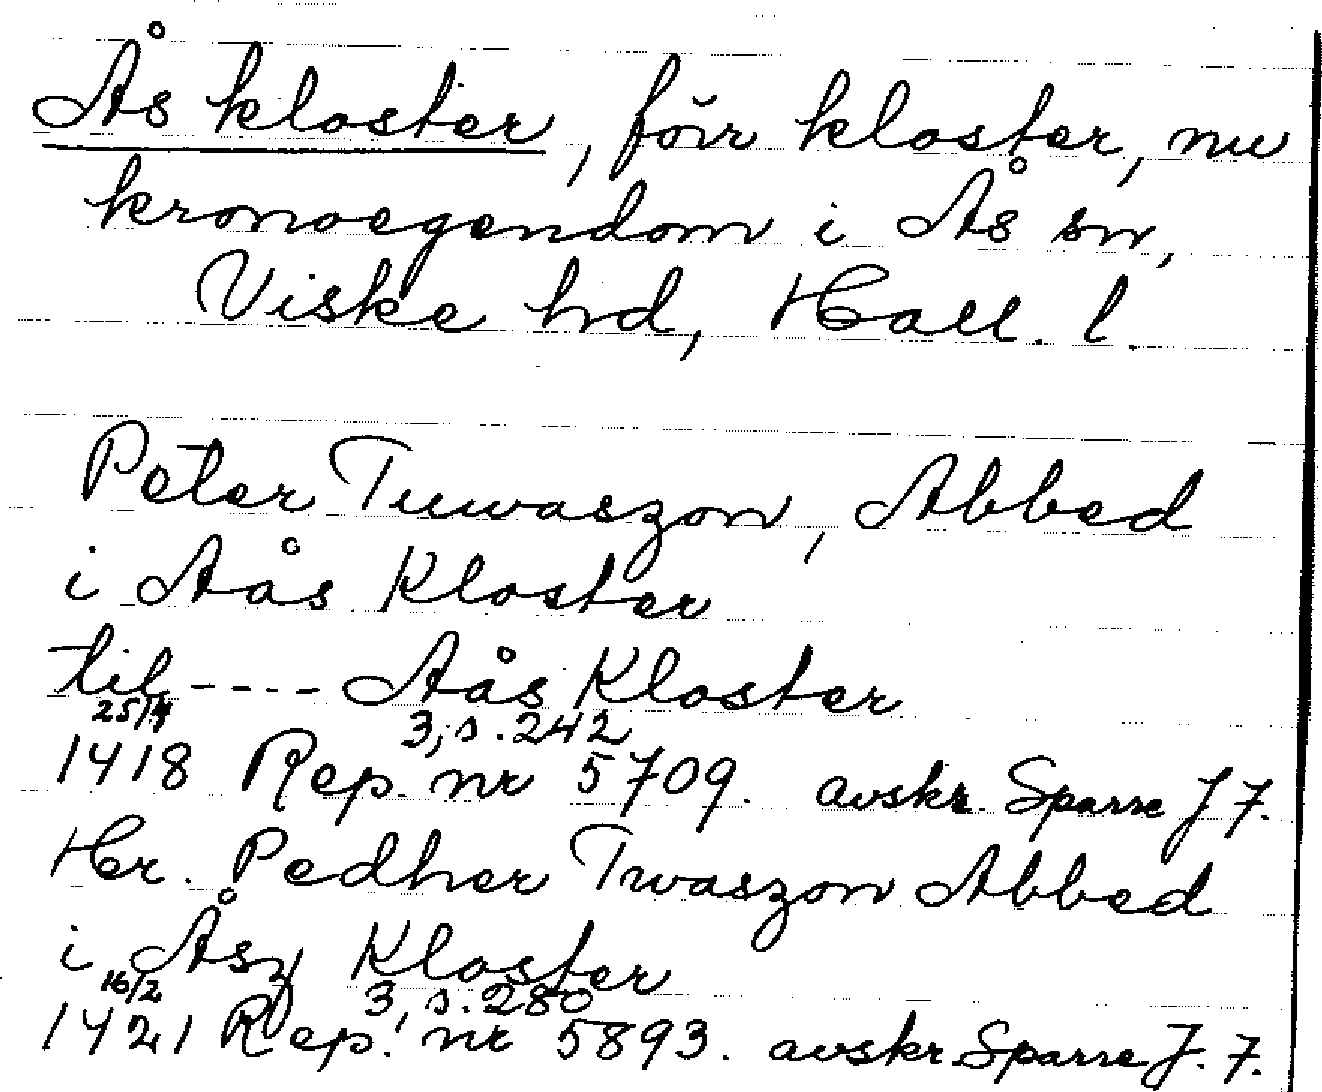 Ås kloster, förr kloster, nu
kronoegendom i Ås sn,
Viske hd, Hall. l.
Peter Tuwaszon, Abbed
i Aås Kloster
til ---- Aås Kloster
25/4 3, s. 242
1418 Rep. nr 5709. avskr. Sparre J 7.
Her. Pedher Twaszon Abbed
i Åsz Kloster
16/2 3, s. 280
1421 Rep. nr 5893. avskr. Sparre J. 7.